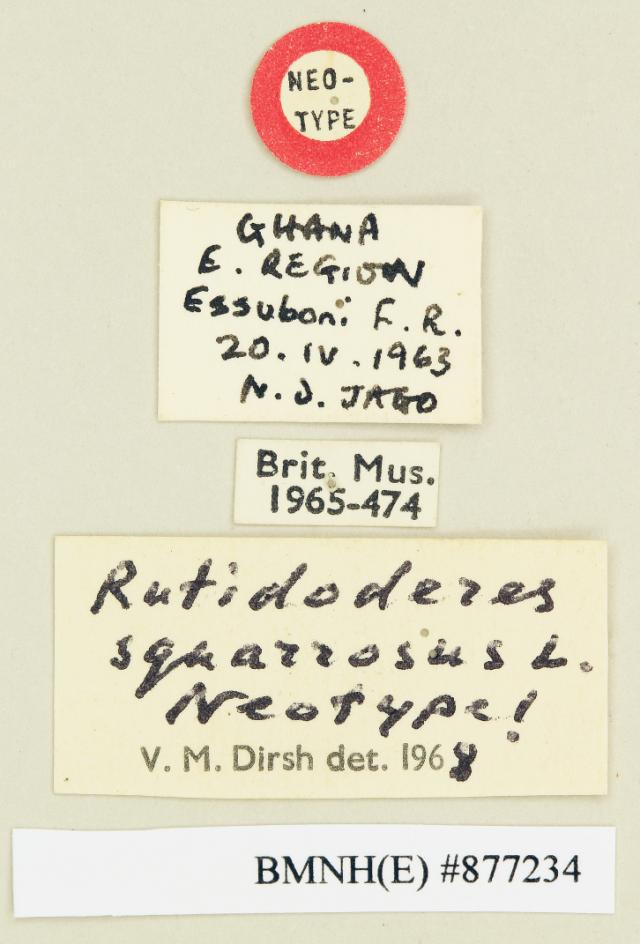 NEO-
TYPE
GHANA
E. REGION
Essuboni F. R.
20. IV. 1963
N. D. JAGO
Brit. Mus.
1965-474
Rutidoderes
squarrosus L.
Neotype!
V. M. Dirsh det. 1968
BMNH(E) #877234